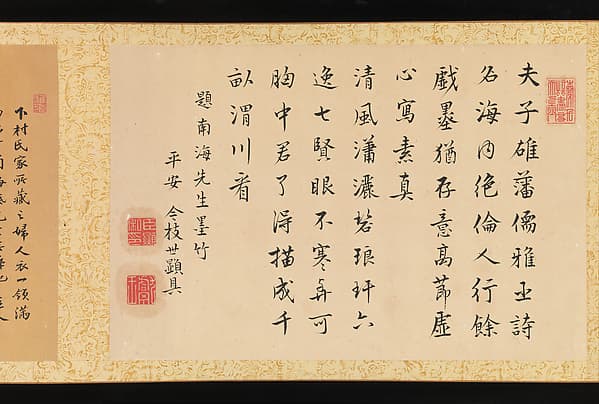 夫子雄藩儒雅詩
名海内絶倫人行餘
戯墨猶存意高節虚
心寫素真
清風瀟灑碧琅玕六
逸七賢眼不寒可
胸中君了得描成千
畝渭川看
題南海先生墨竹
平安 今枝世顕具
下村氏家所藏之婦人衣一領満